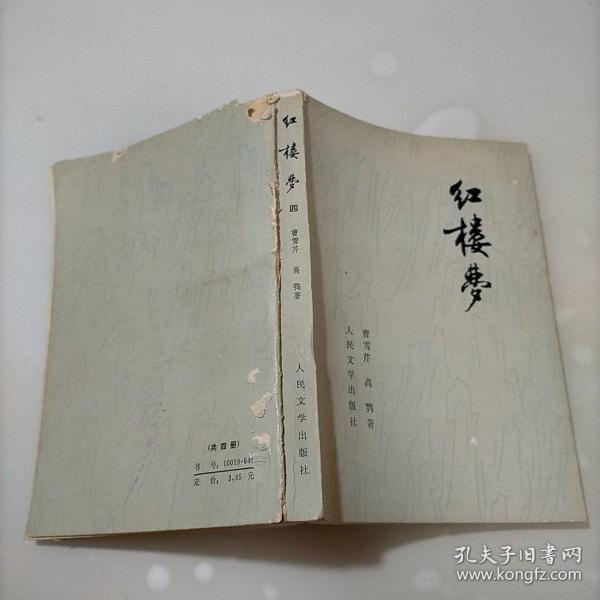 红楼梦
曹雪芹 高鹗著
人民文学出版社
红楼梦 四
曹雪芹 高鹗著
人民文学出版社
(共四册)
书号:10019·64
定价:3.45元
孔夫子旧书网
www.kongfz.com